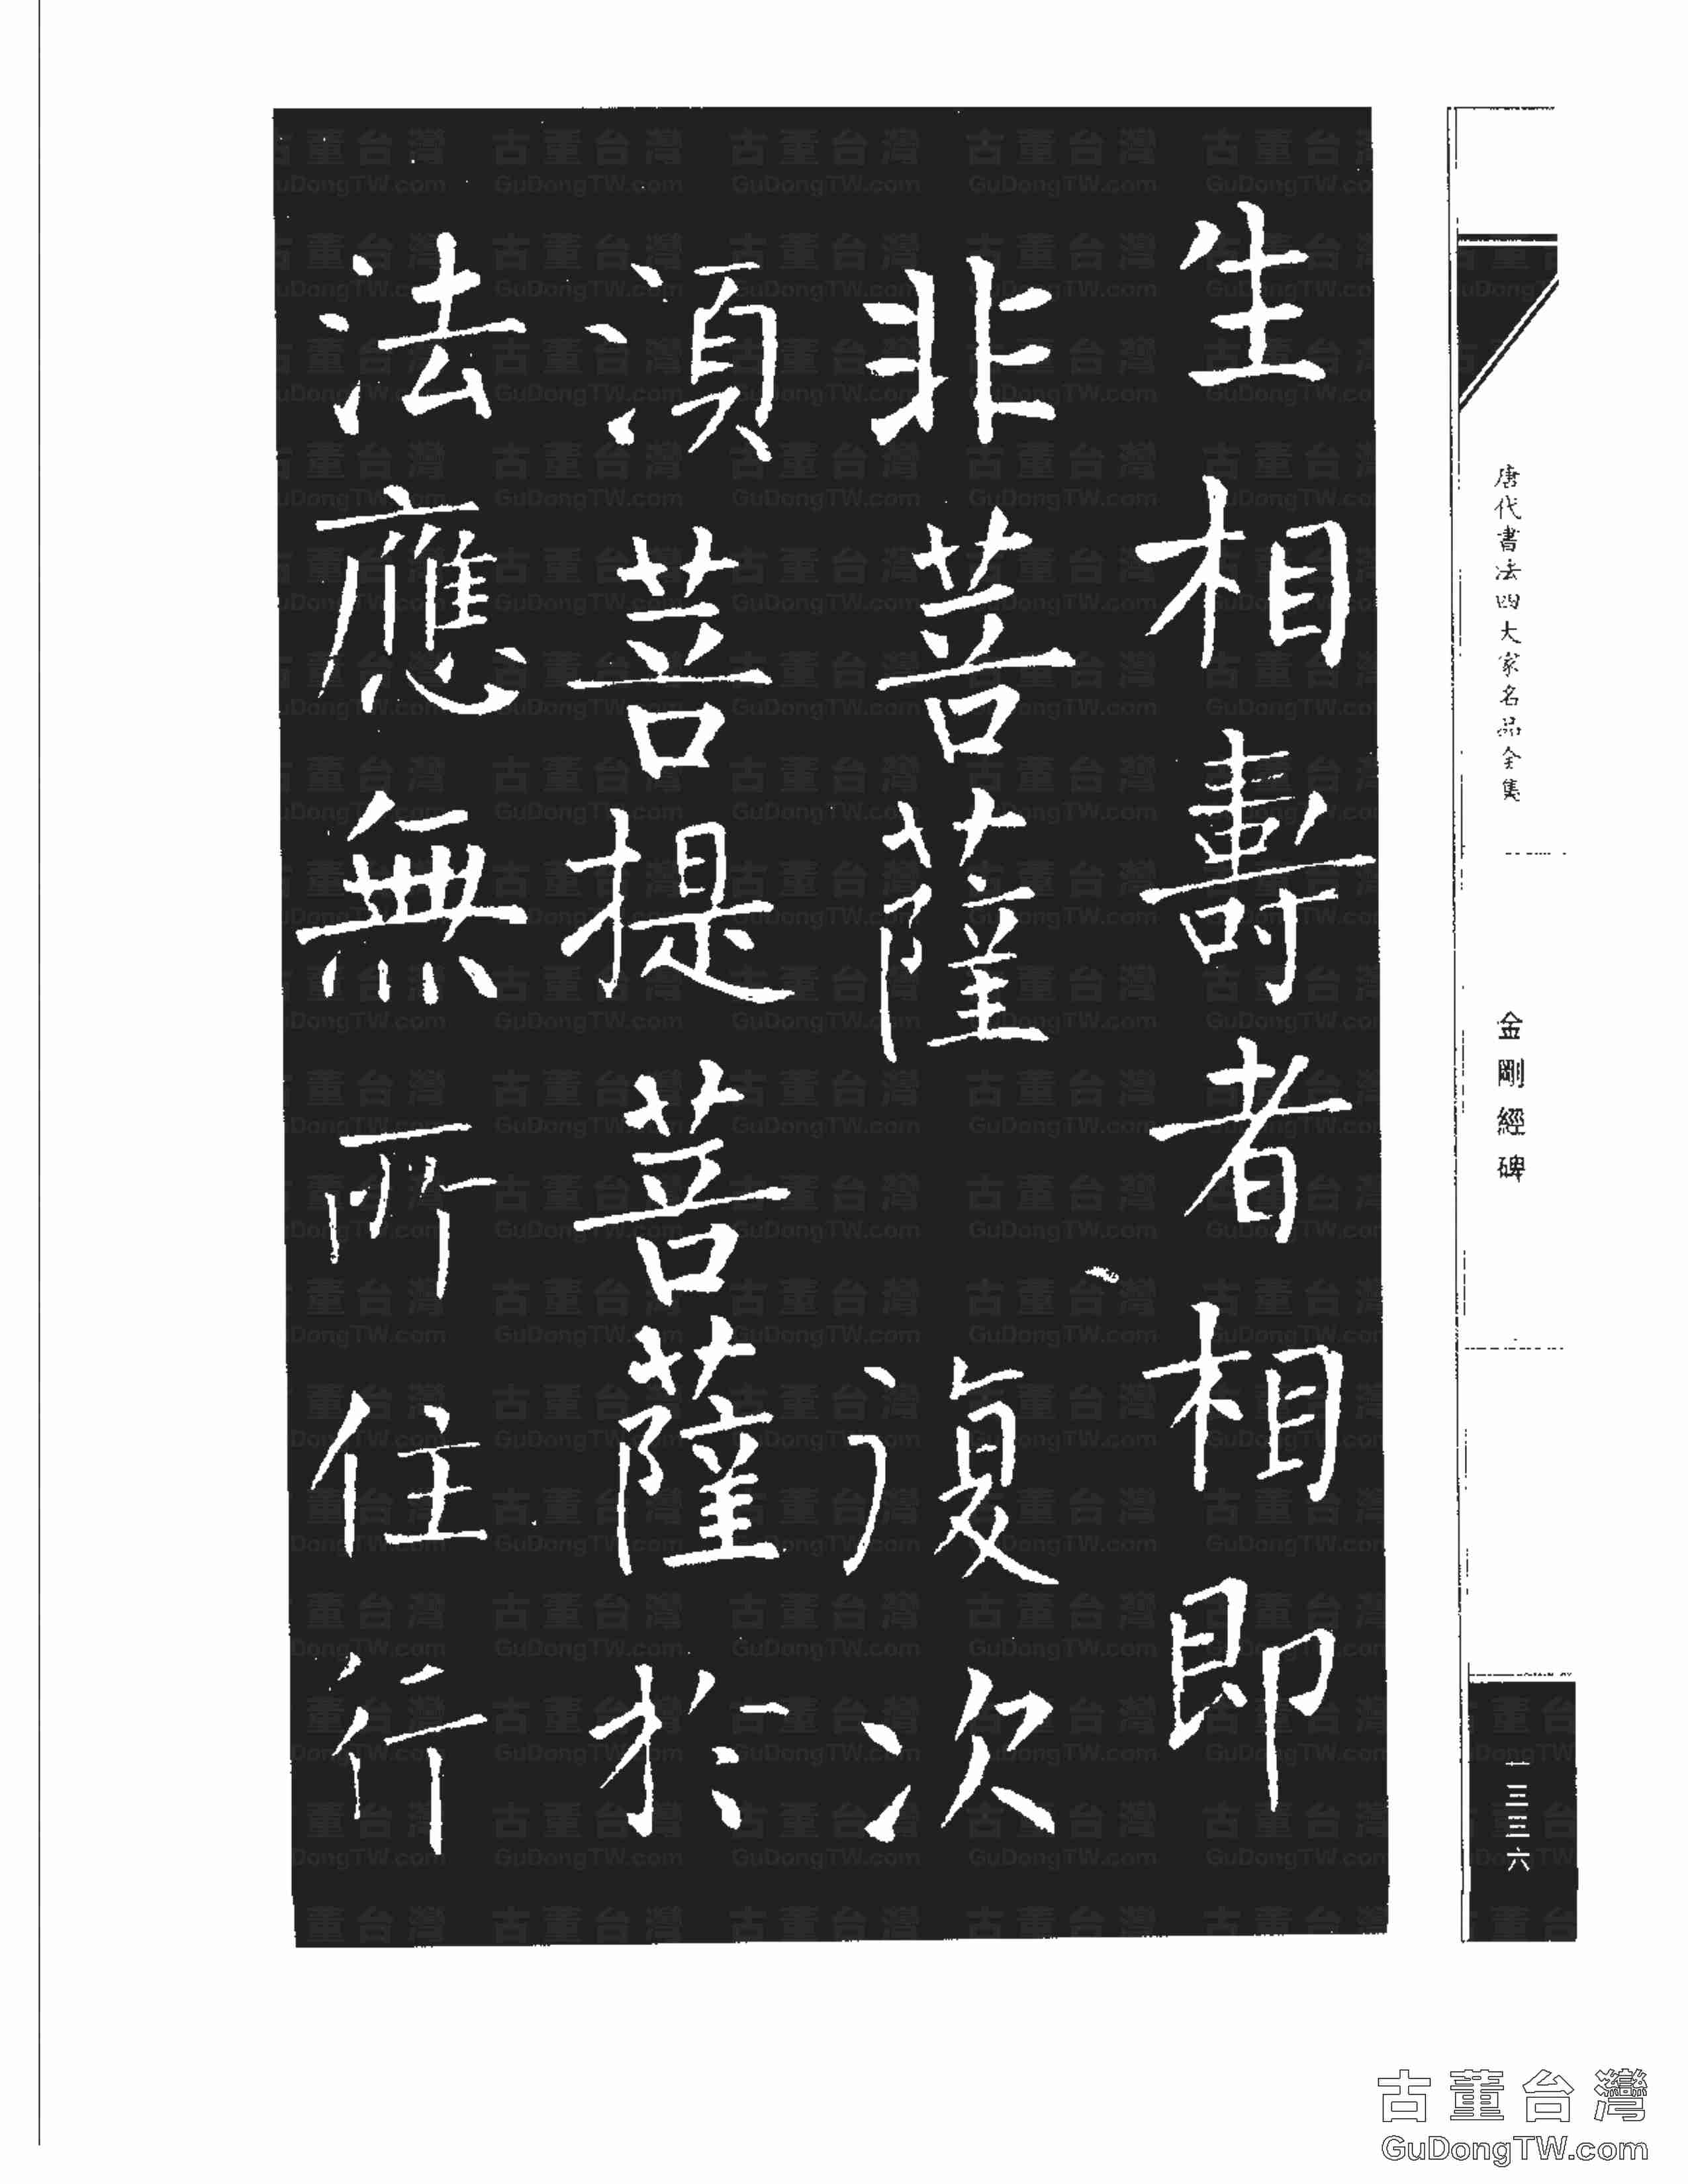 生相壽者相即
非菩薩　復次
湏菩提菩薩於
法應無所住行
唐代書法四大家名品全集
金剛經碑
一三三六
古董台灣
GuDongTW.com